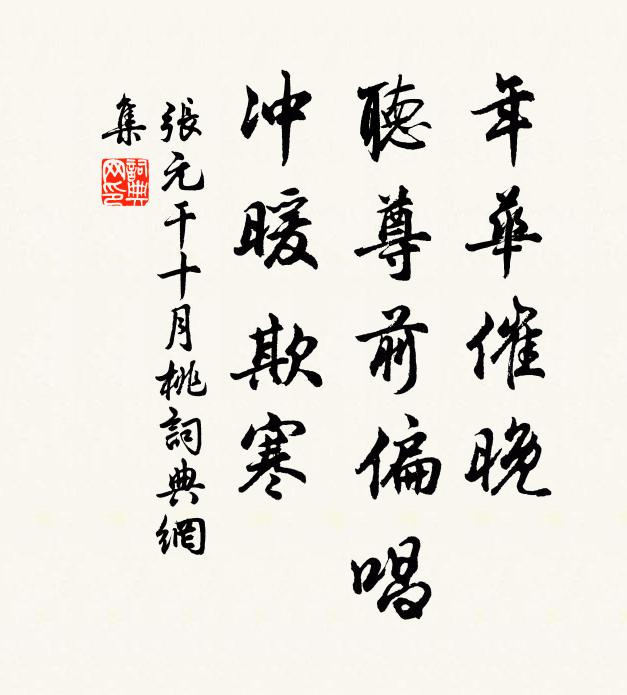 年華催晚
聽尊前偏唱
冲暖欺寒
張元干十月桃詞典網
集
詞典網印